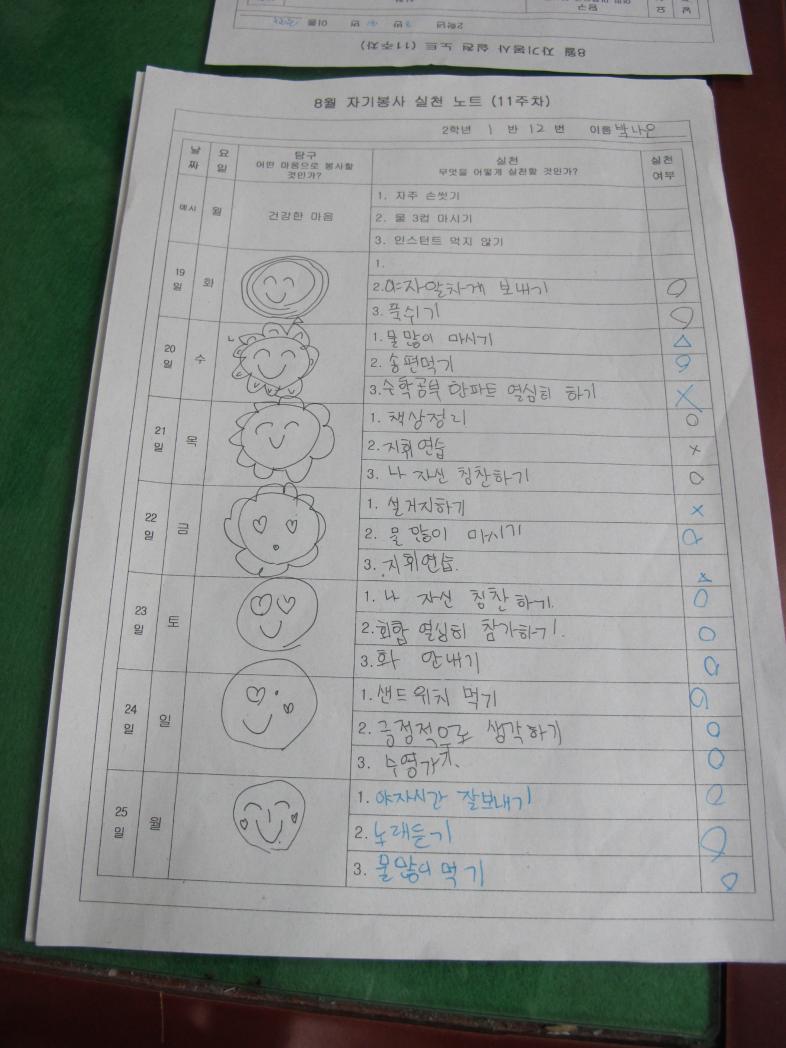 8월 자기봉사 실천 노트 (11주차)
2학년 반 번 이름
8월 자기봉사 실천 노트 (11주차)
2학년 1 반 12 번 이름 박나은
날짜 요일 탐구 어떤 마음으로 봉사할 것인가? 실천 무엇을 어떻게 실천할 것인가? 실천여부
예시 월 건강한 마음 1. 자주 손씻기
2. 물 3컵 마시기
3. 인스턴트 먹지 않기
19일 화 1.
2. 야자알차게 보내기 O
3. 푹쉬기 O
20일 수 1. 물 많이 마시기 △
2. 송편먹기 O
3. 수학공부 한파트 열심히 하기 X
21일 목 1. 책상정리 O
2. 지휘연습 x
3. 나 자신 칭찬하기 O
22일 금 1. 설거지하기 x
2. 물 많이 마시기 O
3. 지휘연습.
23일 토 1. 나 자신 칭찬하기. O
2. 회합 열심히 참가하기. O
3. 화 안내기 O
24일 일 1. 샌드위치 먹기 O
2. 긍정적으로 생각하기 O
3. 수영가기. O
25일 월 1. 야자시간 잘보내기 O
2. 노래듣기 O
3. 물많이 먹기 O